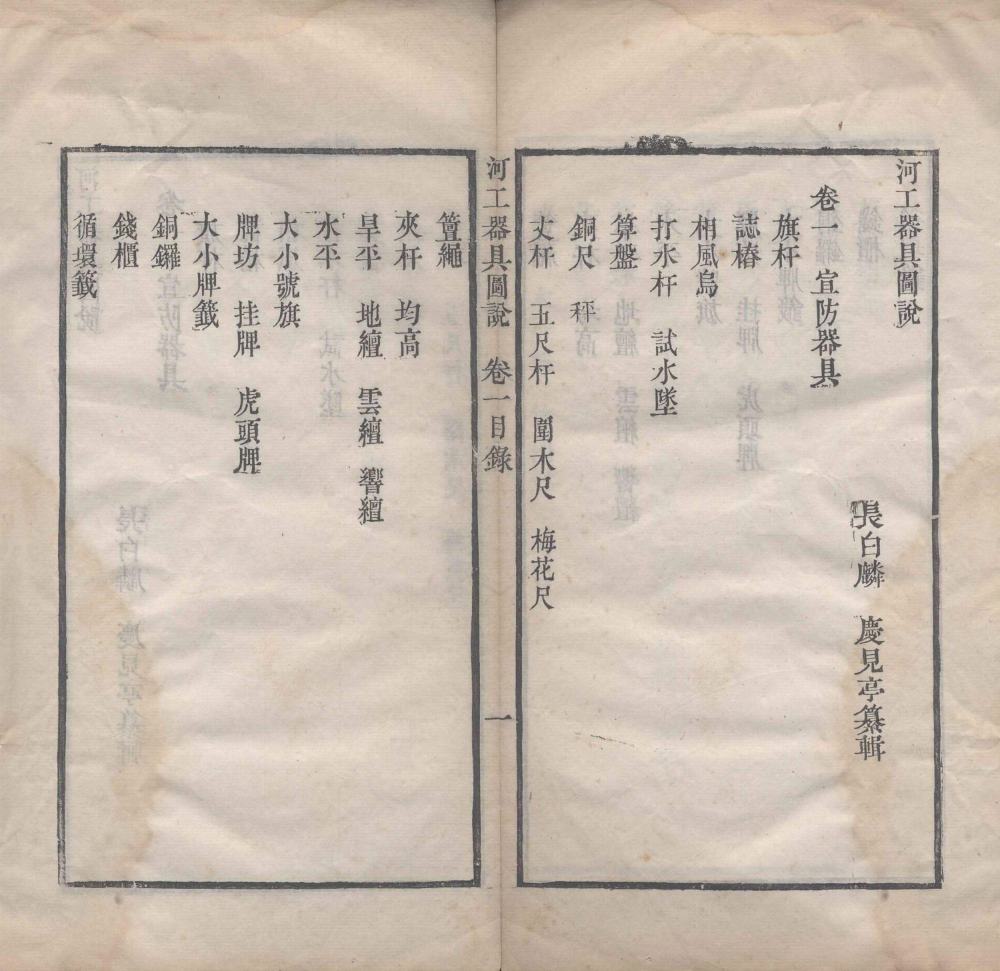 河工器具圖說
長白麟 慶見亭纂輯
卷一 宣防器具
旗杆
誌樁
相風烏
打水杆 試水墜
算盤
銅尺 秤
丈杆 五尺杆 圍木尺 梅花尺
河工器具圖說 卷一目錄 一
篾繩
夾杆 均高
旱平 地䋎 雲䋎 響䋎
水平
大小號旗
牌坊 挂牌 虎頭牌
大小牌籤
銅鑼
錢櫃
循環籤